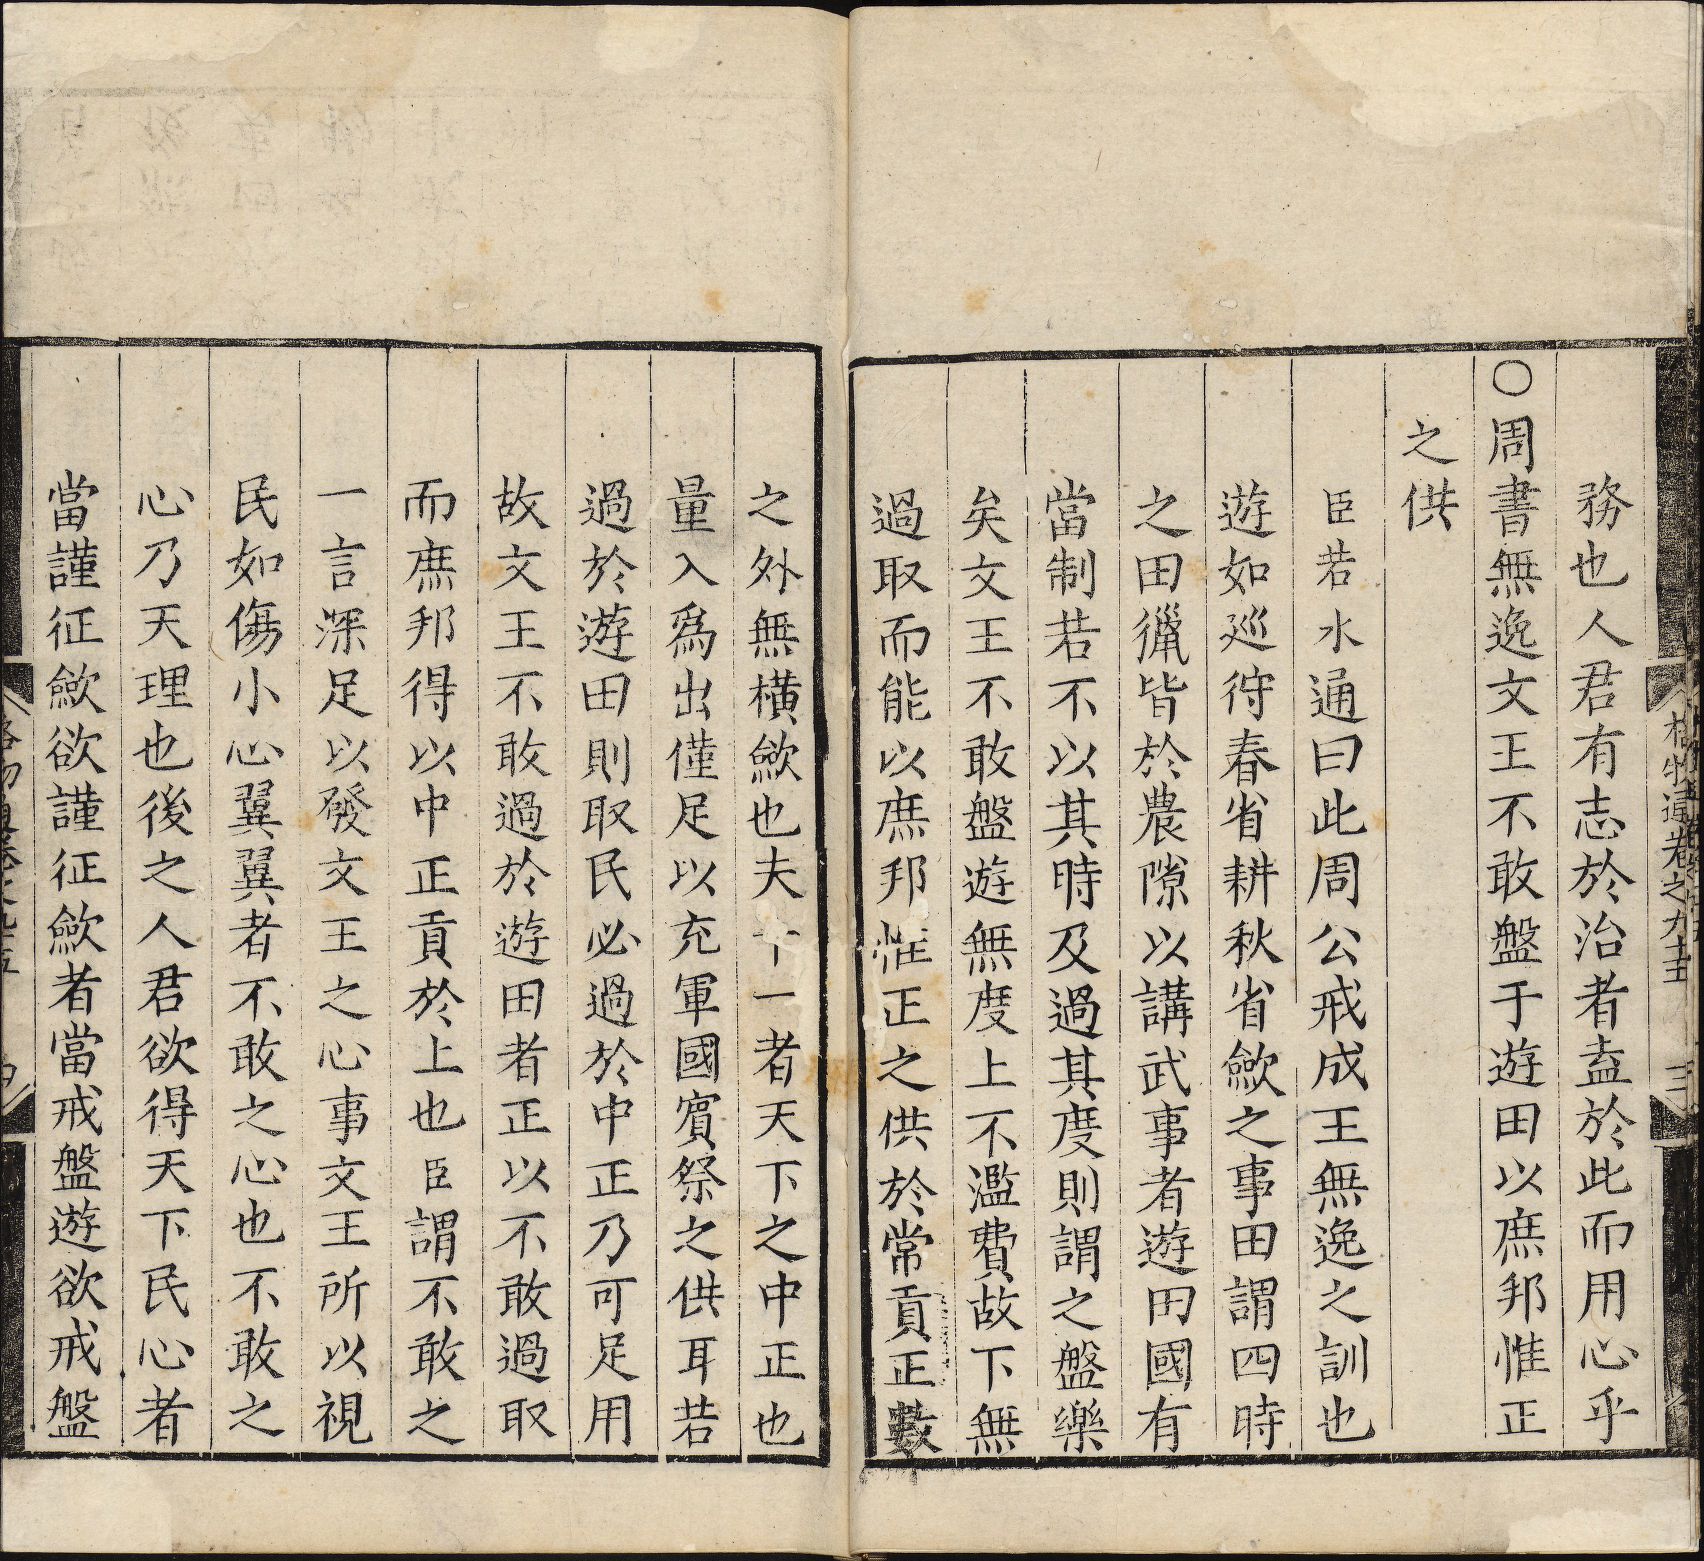 務也人君有志於治者盍於此而用心乎
○周書無逸文王不敢盤于遊田以庶邦惟正
之供
臣若水通曰此周公戒成王無逸之訓也
遊如廵狩春省耕秋省歛之事田謂四時
之田獵皆於農隙以講武事者遊田國有
當制若不以其時及過其度則謂之盤樂
矣文王不敢盤遊無度上不濫費故下無
過取而能以庶邦惟正之供於常貢正數
之外無橫歛也夫十一者天下之中正也
量入爲出僅足以充軍國賓祭之供耳若
過於遊田則取民必過於中正乃可足用
故文王不敢過於遊田者正以不敢過取
而庶邦得以中正貢於上也臣謂不敢之
一言深足以發文王之心事文王所以視
民如傷小心翼翼者不敢之心也不敢之
心乃天理也後之人君欲得天下民心者
當謹征歛欲謹征歛者當戒盤遊欲戒盤
格物通卷之九十五
三